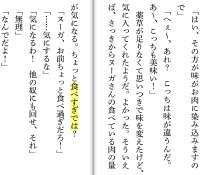 「はい、その方が味がお肉に染み込みますの
で」
「へぇー、あれ? こっちは味が違うんだ。
あー、こっちも美味い!」
薬草が足りなくて思いつきで味を変えたけど、
気に入ってくれたようだ。よかった。そういえ
ば、さっきからヌーガさんの食べている肉の量
が気になる。ちょっと食べすぎでは?
「ヌーガ、お前ちょっと食べ過ぎだろ!」
「……気にするな」
「気になるわ! 他の奴にも回せ、それ」
「無理」
「なんでだよ!」